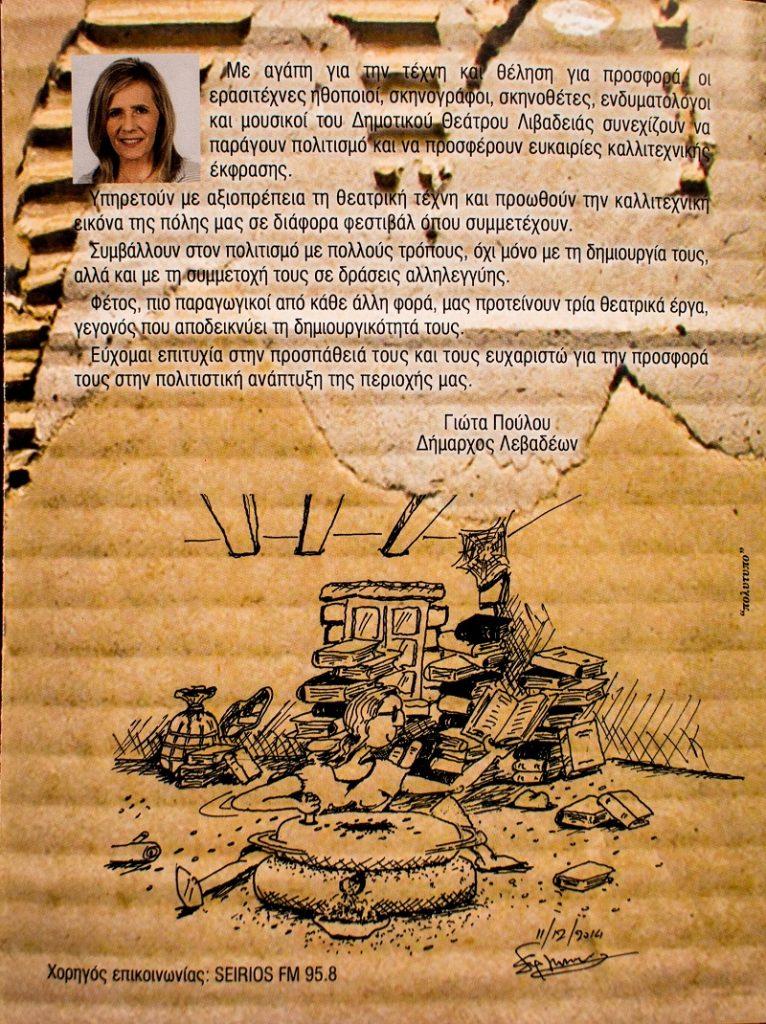 Με αγάπη για την τέχνη και θέληση για προσφορά, οι
ερασιτέχνες ηθοποιοί, σκηνογράφοι, σκηνοθέτες, ενδυματολόγοι
και μουσικοί του Δημοτικού Θεάτρου Λιβαδειάς συνεχίζουν να
παράγουν πολιτισμό και να προσφέρουν ευκαιρίες καλλιτεχνικής
έκφρασης.
Υπηρετούν με αξιοπρέπεια τη θεατρική τέχνη και προωθούν την καλλιτεχνική
εικόνα της πόλης μας σε διάφορα φεστιβάλ όπου συμμετέχουν.
Συμβάλλουν στον πολιτισμό με πολλούς τρόπους, όχι μόνο με τη δημιουργία τους,
αλλά και με τη συμμετοχή τους σε δράσεις αλληλεγγύης.
Φέτος, πιο παραγωγικοί από κάθε άλλη φορά, μας προτείνουν τρία θεατρικά έργα,
γεγονός που αποδεικνύει τη δημιουργικότητά τους.
Εύχομαι επιτυχία στην προσπάθειά τους και τους ευχαριστώ για την προσφορά
τους στην πολιτιστική ανάπτυξη της περιοχής μας.
Γιώτα Πούλου
Δήμαρχος Λεβαδέων
"πολυτυπο"
11/12/2014
Χορηγός επικοινωνίας: SEIRIOS FM 95.8